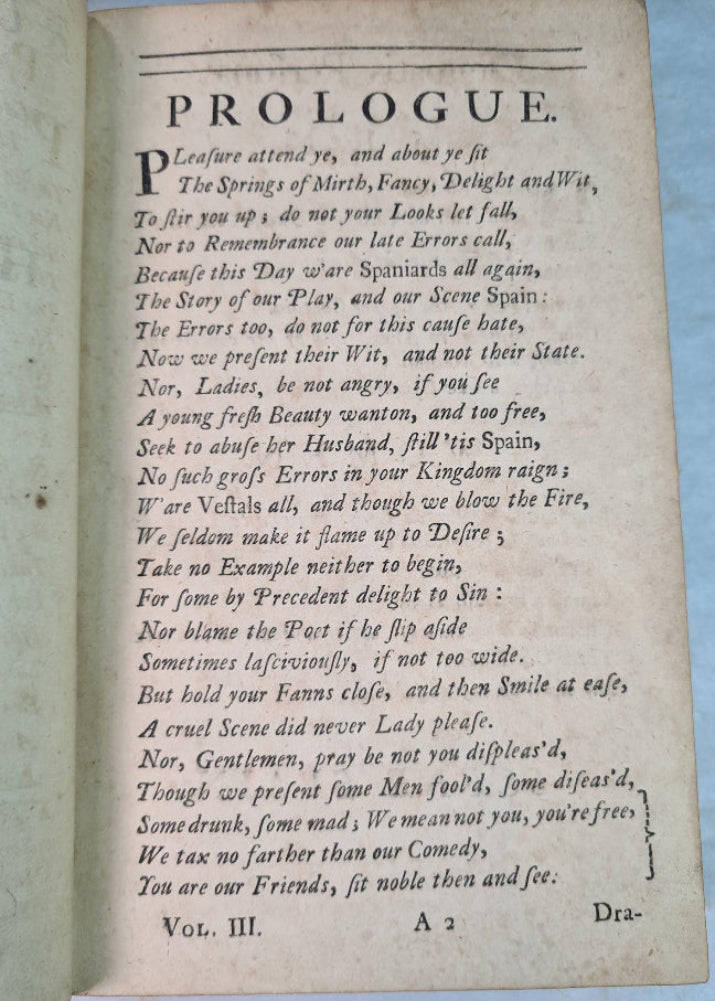 PROLOGUE.
PLeaſure attend ye, and about ye ſit
The Springs of Mirth, Fancy, Delight and Wit,
To ſtir you up; do not your Looks let fall,
Nor to Remembrance our late Errors call,
Becauſe this Day w'are Spaniards all again,
The Story of our Play, and our Scene Spain:
The Errors too, do not for this cauſe hate,
Now we preſent their Wit, and not their State.
Nor, Ladies, be not angry, if you ſee
A young freſh Beauty wanton, and too free,
Seek to abuſe her Husband, ſtill 'tis Spain,
No ſuch groſs Errors in your Kingdom raign;
W'are Veſtals all, and though we blow the Fire,
We ſeldom make it flame up to Deſire;
Take no Example neither to begin,
For ſome by Precedent delight to Sin:
Nor blame the Poet if he ſlip aſide
Sometimes laſciviouſly, if not too wide.
But hold your Fanns cloſe, and then Smile at eaſe,
A cruel Scene did never Lady pleaſe.
Nor, Gentlemen, pray be not you diſpleas'd,
Though we preſent ſome Men fool'd, ſome diſeas'd,
Some drunk, ſome mad; We mean not you, you're free,
We tax no farther than our Comedy,
You are our Friends, ſit noble then and ſee.
VOL. III. A 2 Dra-